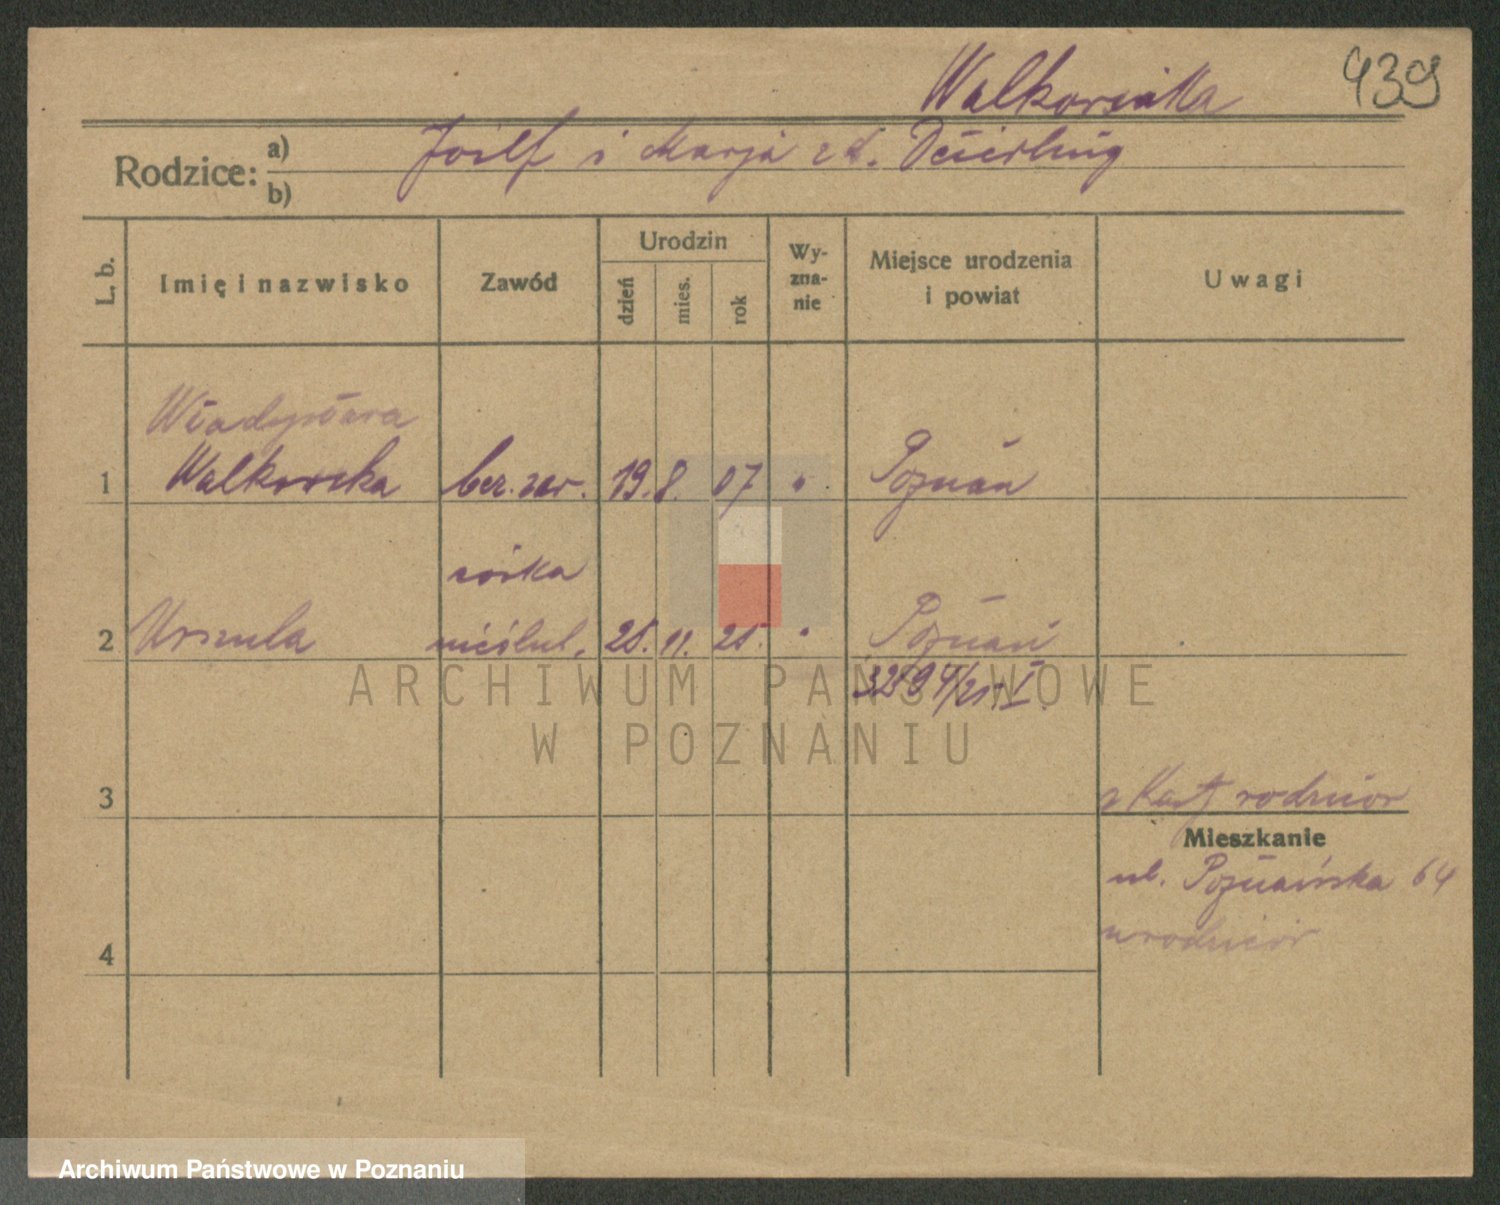 Walkowiaka
439
Rodzice: a) Józef i Marja z d. Deierling
b)
L. b.
Imię i nazwisko
Zawód
Urodzin
dzień
mies.
rok
Wy-
zna-
nie
Miejsce urodzenia
i powiat
Uwagi
Władysława
1 Walkowska bez. zaw. 19. 8. 07 Poznań
córka
2 Urszula nieślub. 25. 11. 25. Poznań
ARCHIWUM PAŃSTWOWE
W POZNANIU
3 z Kart rodziców
Mieszkanie
ul. Poznańska 64
u rodziców
4
Archiwum Państwowe w Poznaniu